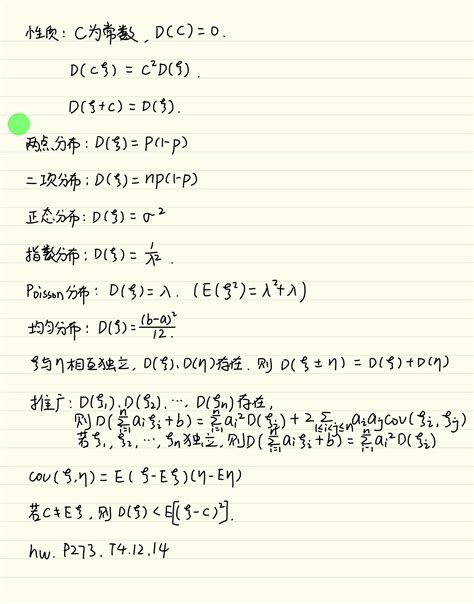 性质: C为常数, D(C)=0.
D(cξ) = c²D(ξ).
D(ξ+c) = D(ξ).
两点分布: D(ξ)= P(1-p)
二项分布: D(ξ)= np(1-p)
正态分布: D(ξ)= σ²
指数分布: D(ξ)= 1/λ².
Poisson分布: D(ξ)= λ. (E(ξ²)=λ²+λ)
均匀分布: D(ξ)= (b-a)²/12.
ξ与η相互独立, D(ξ)、D(η)存在. 则 D(ξ±η) = D(ξ)+D(η)
推广: D(ξ₁), D(ξ₂), ···, D(ξn)存在,
则 D(∑_{i=1}^{n} aᵢξᵢ+b) = ∑_{i=1}^{n} aᵢ²D(ξᵢ) + 2∑_{1≤i<j≤n} aᵢaⱼcov(ξᵢ, ξⱼ)
若ξ₁, ξ₂, ···, ξn独立, 则D(∑_{i=1}^{n} aᵢξᵢ+b) = ∑_{i=1}^{n} aᵢ²D(ξᵢ)
cov(ξ,η) = E(ξ-Eξ)(η-Eη)
若C≠Eξ, 则 D(ξ)<E[(ξ-C)²].
hw. P273. T4.12.14